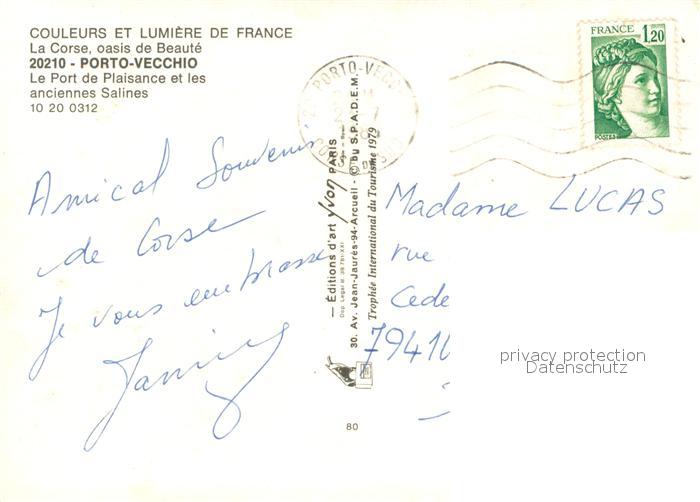 COULEURS ET LUMIÈRE DE FRANCE
La Corse, oasis de Beauté
20210 - PORTO-VECCHIO
Le Port de Plaisance et les
anciennes Salines
10 20 0312
FRANCE
1,20
POSTES
PORTO-VECC
Amical Souvenir
de Corse
Je vous embrasse
— Éditions d'art Yvon PARIS
30. Av. Jean-Jaurès-94-Arcueil - © by S.P.A.D.E.M.
Trophée International du Tourisme 1979
Madame LUCAS
rue
Cede
7941
privacy protection
Datenschutz
80